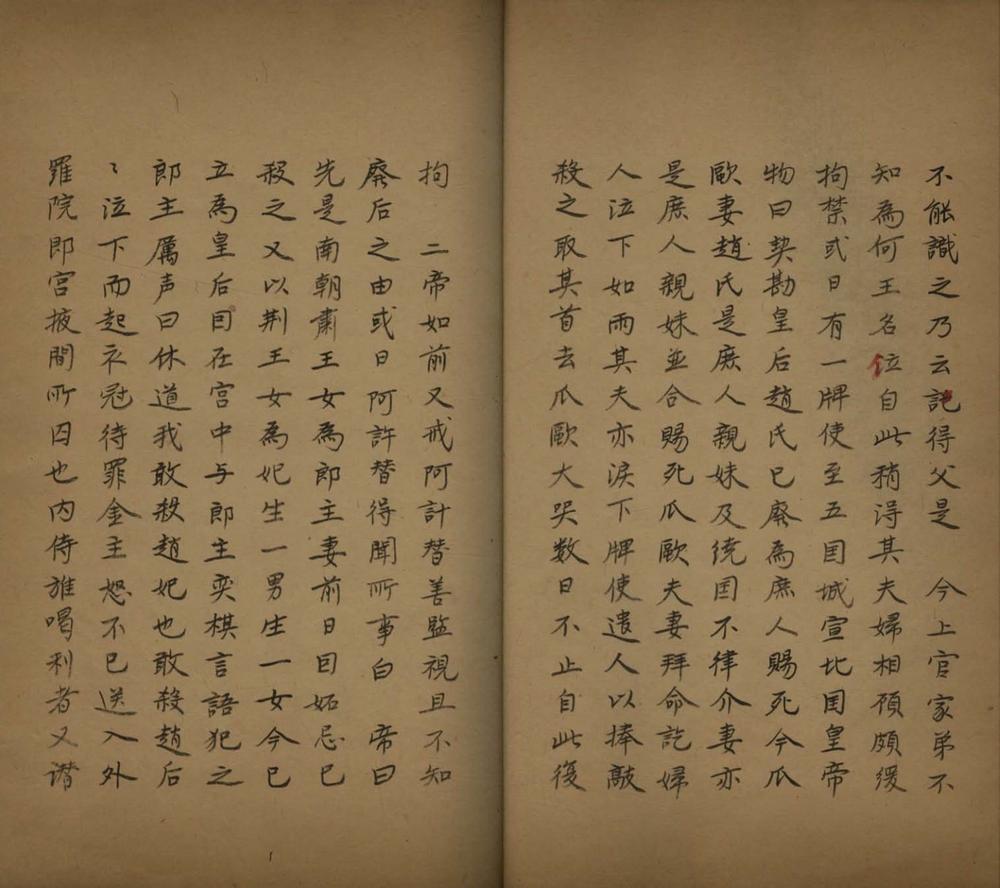 不能識之乃云記得父是　今上官家弟不
知為何王名位自此稍得其夫婦相頋頗缓
拘禁或日有一牌使至五囯城宣比囯皇帝
物曰契勘皇后趙氏已廢為庶人賜死今爪
歐妻趙氏是庶人親妹及统囯不律介妻亦
是庶人親妹並合賜死爪歐夫妻拜命訖婦
人泣下如雨其夫亦淚下牌使遣人以捧敲
殺之取其首去爪歐大哭数日不止自此復
拘　二帝如前又戒阿計替善監視且不知
廢后之由或日阿許替得聞所事白　帝曰
先是南朝肅王女為郎主妻前日囙妬忌已
殺之又以荆王女為妃生一男生一女今已
立為皇后囙在宫中与郎主奕棋言語犯之
郎主厲声曰休道我敢殺趙妃也敢殺趙后
〻泣下而起衣冠待罪金主怒不已送入外
羅院即宫掖間所囚也内侍雄喝利者又譖